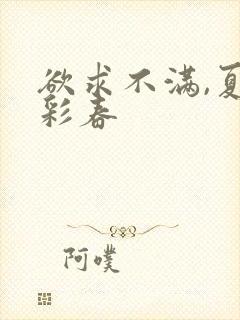 欲求不满,夏
彩春
阿噗